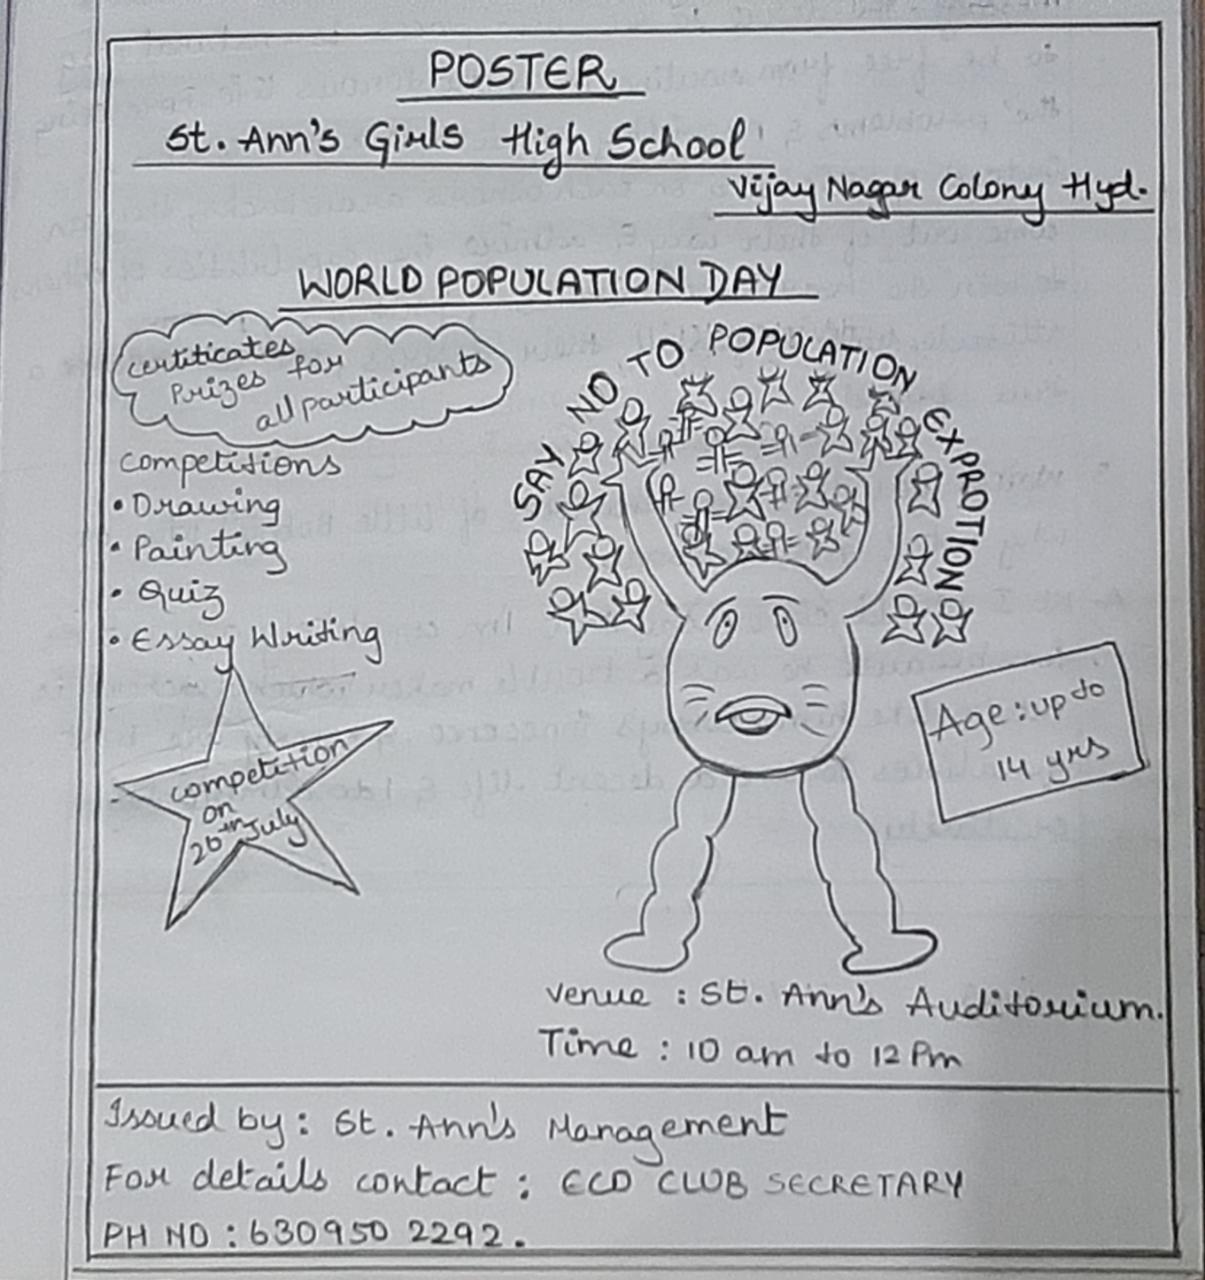 POSTER
St. Ann's Girls High School
Vijay Nagar Colony Hyd.
WORLD POPULATION DAY
certificates
Prizes for
all participants
SAY NO TO POPULATION EXPROTION
competitions
• Drawing
• Painting
• Quiz
• Essay Writing
competition
on
26th July
Age : up to
14 yrs
Venue : St. Ann's Auditorium.
Time : 10 am to 12 Pm
Issued by : St. Ann's Management
For details contact : ECD CLUB SECRETARY
PH NO : 630950 2292.